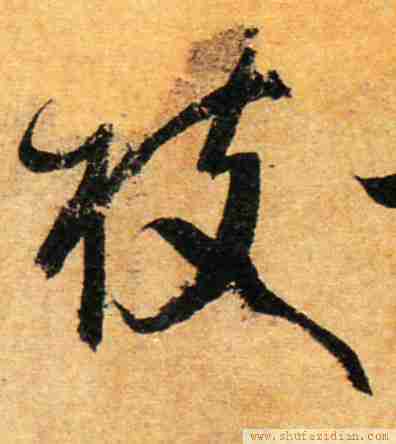 枝
www.shufazidian.com